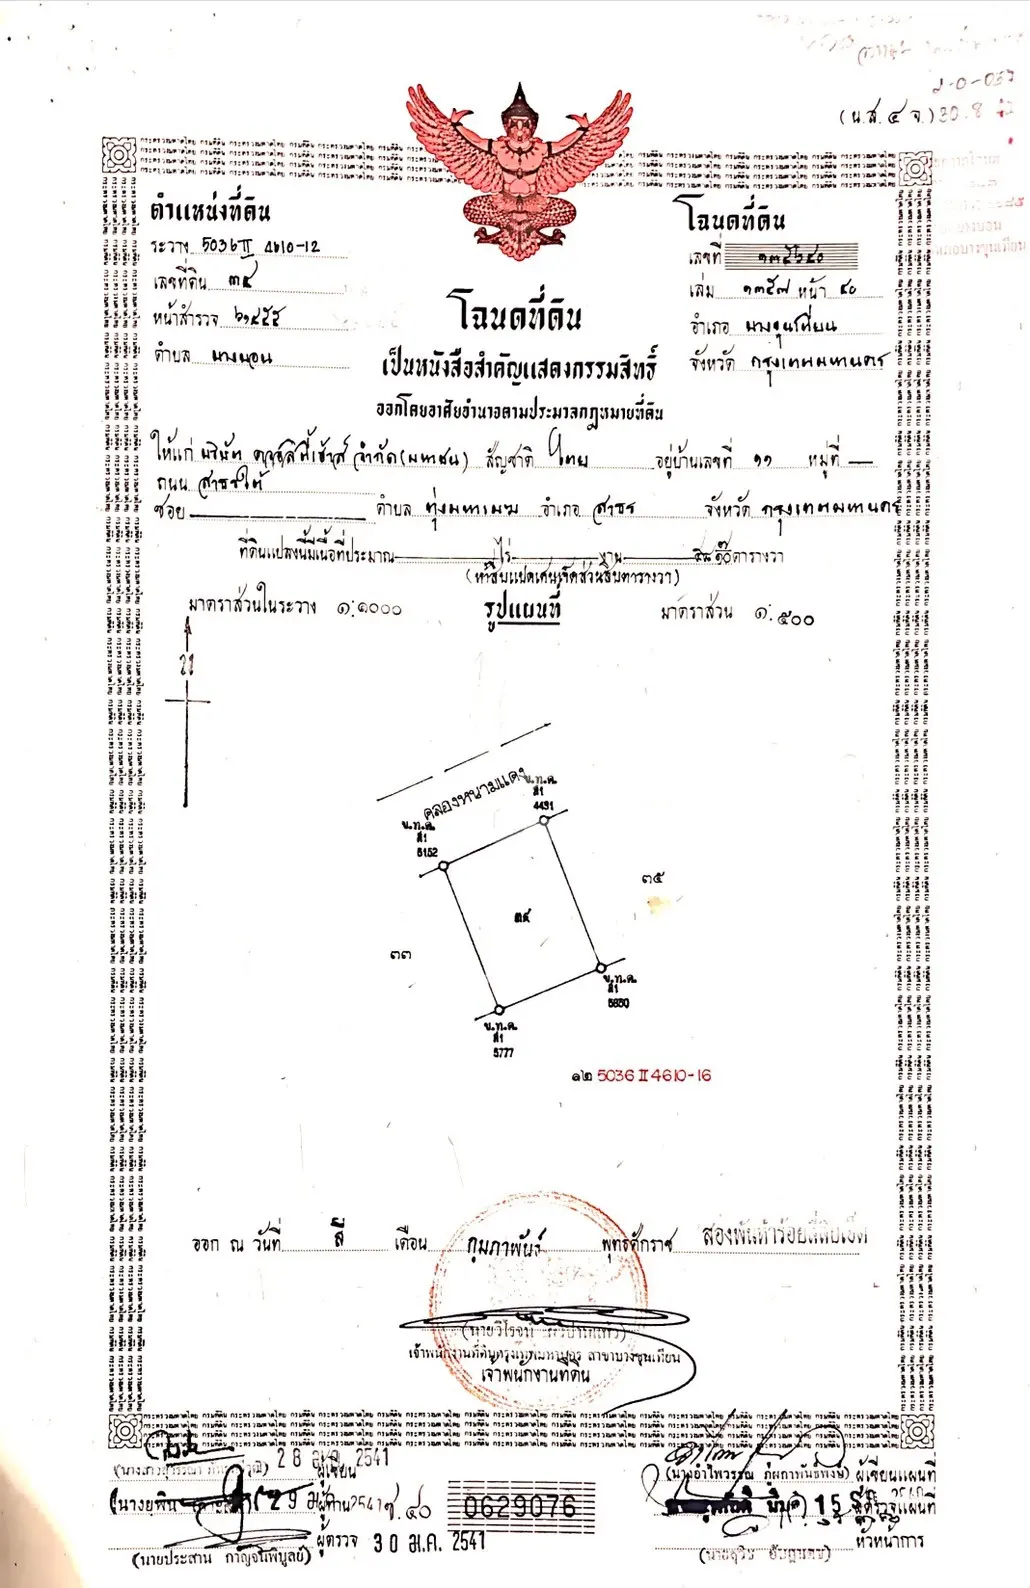 (น.ส.๔ จ.) 30.8
ตำแหน่งที่ดิน
ระวาง 5036 II 4610-12
เลขที่ดิน ๓๔
หน้าสำรวจ ๖๑๔๕๕
ตำบล บางบอน
โฉนดที่ดิน
เลขที่ ๑๓๕๖๔๐
เล่ม ๑๓๕๗ หน้า ๔๐
อำเภอ บางขุนเทียน
จังหวัด กรุงเทพมหานคร
โฉนดที่ดิน
เป็นหนังสือสำคัญแสดงกรรมสิทธิ์
ออกโดยอาศัยอำนาจตามประมวลกฎหมายที่ดิน
ให้แก่ บริษัท ควอลิตี้เฮ้าส์ จำกัด (มหาชน) สัญชาติ ไทย อยู่บ้านเลขที่ ๑๑ หมู่ที่ —
ถนน สาธรใต้
ซอย — ตำบล ทุ่งมหาเมฆ อำเภอ สาธร จังหวัด กรุงเทพมหานคร
ที่ดินแปลงนี้มีเนื้อที่ประมาณ — ไร่ — งาน ตารางวา
(ห้าสิบแปดเศษเจ็ดส่วนสิบตารางวา)
มาตราส่วนในระวาง ๑:๑๐๐๐ รูปแผนที่ มาตราส่วน ๑:๕๐๐
น
คลองหนามแดง
บ.ท.ค.
สี1
4491
บ.ท.ค.
สี1
5152
๓๕
๓๔
๓๓
บ.ท.ค.
สี1
บ.ท.ค.
สี1
5777
๑๒ 5036 II 4610-16
ออก ณ วันที่ สี่ เดือน กุมภาพันธ์ พุทธศักราช สองพันห้าร้อยสี่สิบเอ็ด
เจ้าพนักงานที่ดินกรุงเทพมหานคร สาขาบางขุนเทียน
เจ้าพนักงานที่ดิน
28 ม.ค. 2541
ผู้เขียน
29 ม.ค. 2541
ผู้ทาน
0629076
ผู้ตรวจ 30 ม.ค. 2541
(นายประสาน กาญจนพิบูลย์)
(นางอำไพวรรณ ภู่ผกาพันธ์พงษ์) ผู้เขียนแผนที่
ผู้ตรวจแผนที่
หัวหน้าการ